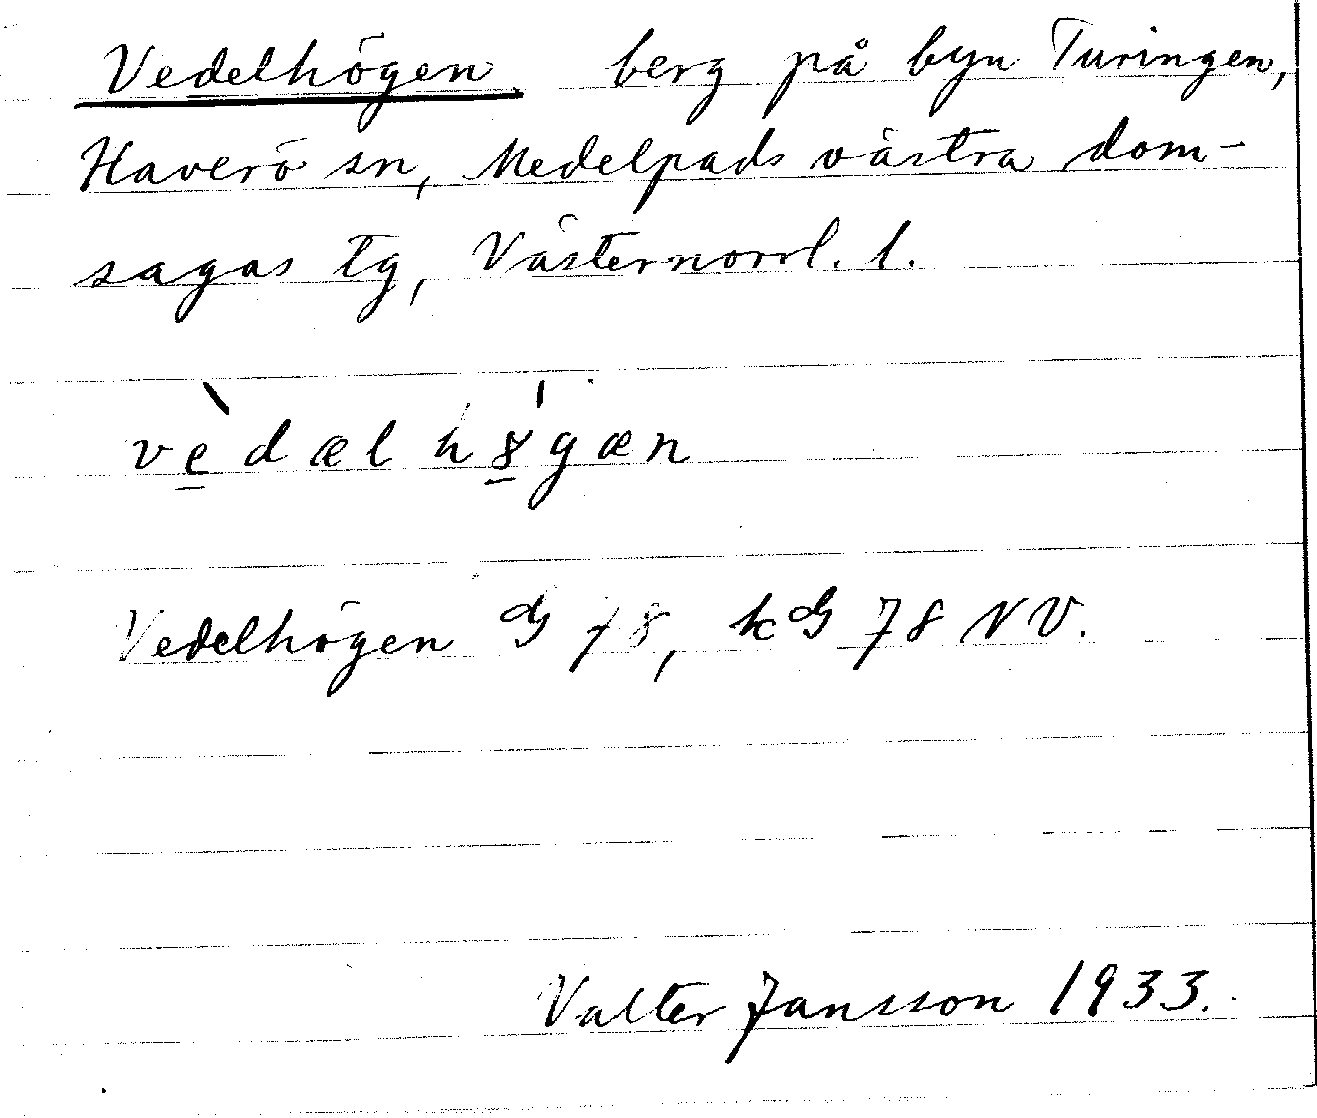 Vedelhögen berg på byn Turingen,
Haverö sn, Medelpads västra dom-
sagas tg, Västernorrl. l.
vèdælhøgæn
Vedelhögen G 78, kG 78 NV.
Valter Jansson 1933.